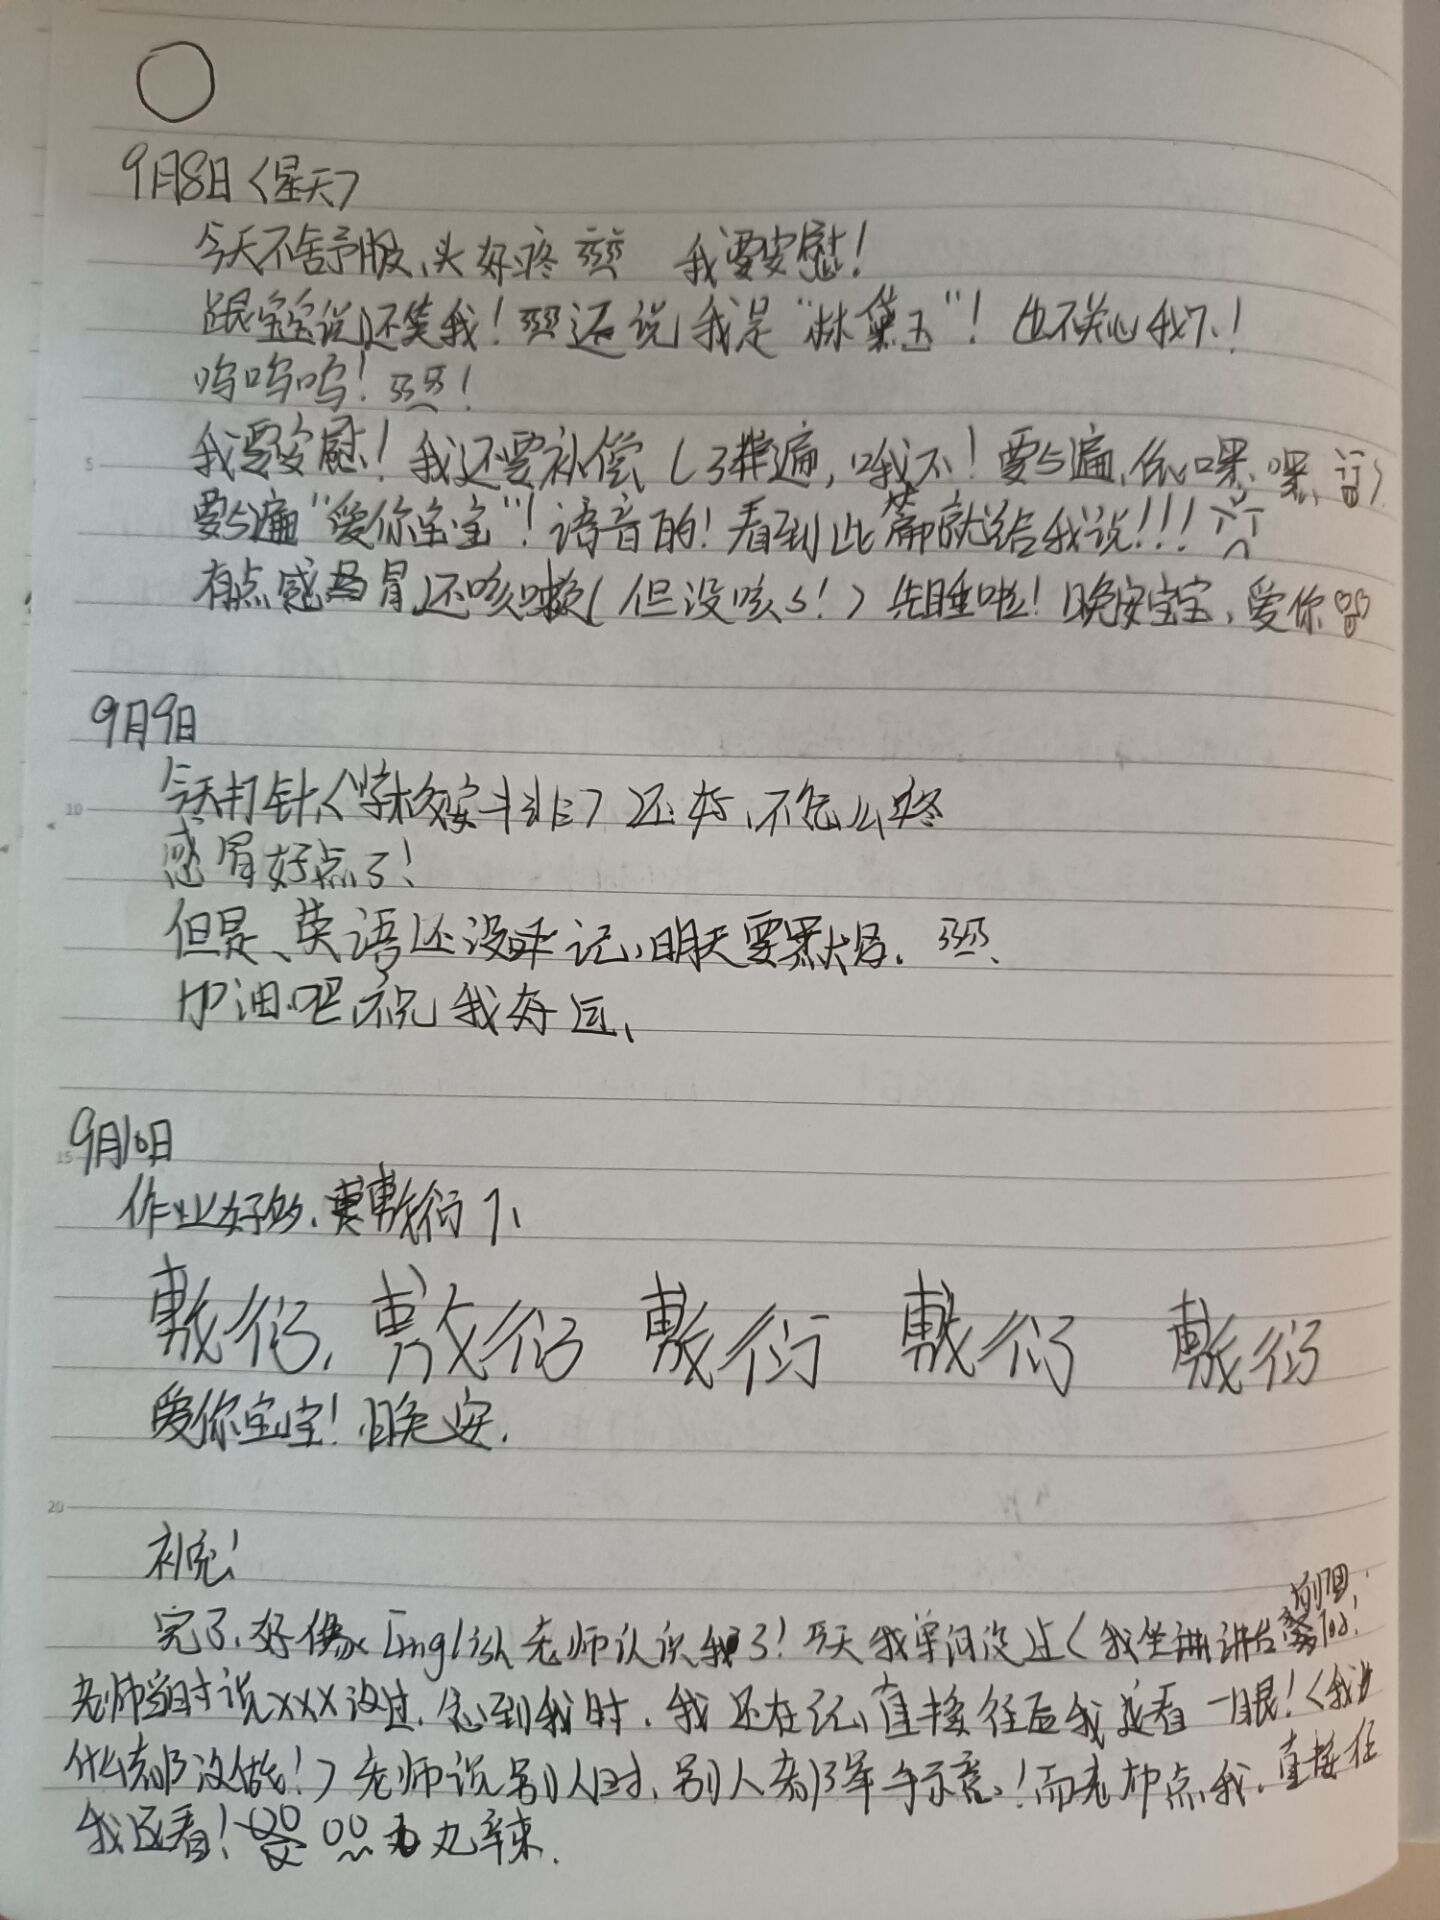 9月8日〈星天〉
今天不舒服、头好疼 我要安慰！
跟宝宝说还笑我！还说我是“林黛玉”！也不关心我了！
呜呜呜！！
我要安慰！我还要补偿（3遍，哦不！要5遍，嘿嘿
要5遍“爱你宝宝”！语音的！看到此篇就给我说！！！
有点感冒还咳嗽（但没咳s！）先睡啦！晚安宝宝、爱你
9月9日
今天打针〈学校安排〉还好、不怎么疼
感冒好点了！
但是、英语还没记、明天要默写.
加油吧、祝我好运、
9月10日
作业好多、要敷衍了、
敷衍、敷衍 敷衍 敷衍 敷衍
爱你宝宝！晚安.
补充！
完了、好像English老师认识我了！今天我单词没过〈我坐讲台旁 前1团！
老师当时说xxx没过.念到我时.我还在记、直接往后我这看一眼！〈我
什么都没做！〉老师说别人时、别人都举手示意、！而老师点我、直接往
我这看！完辣.